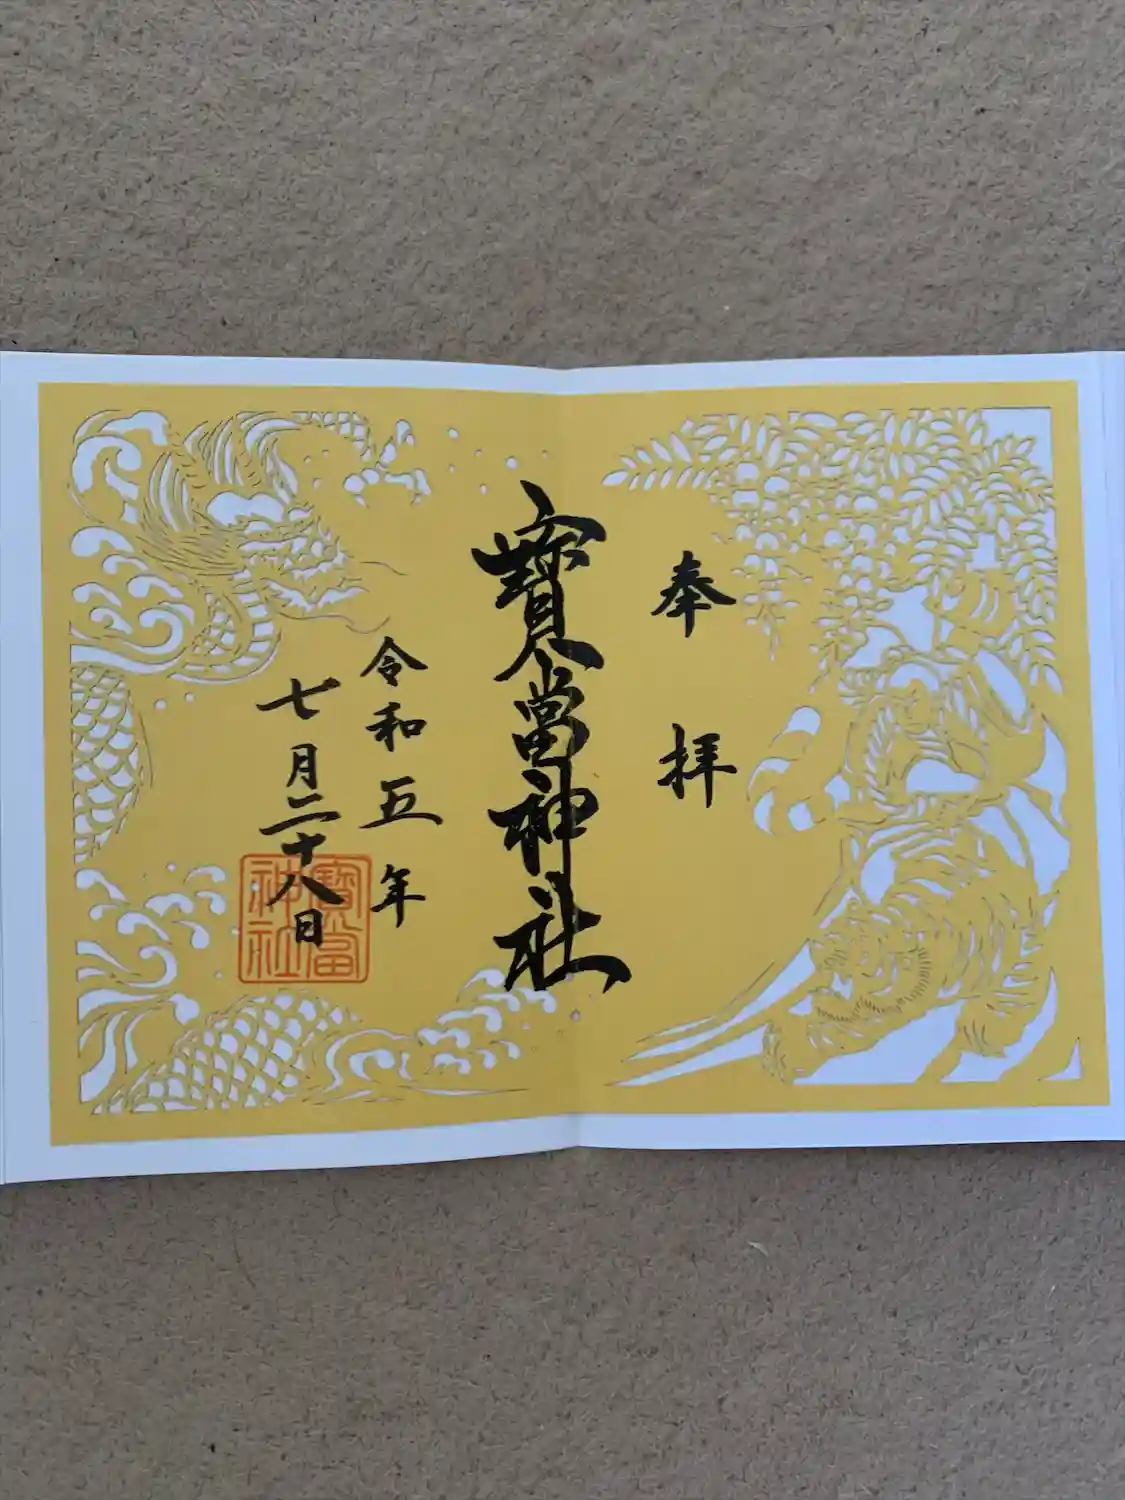 奉拝
寳當神社
令和五年
七月二十八日
寳當
神社